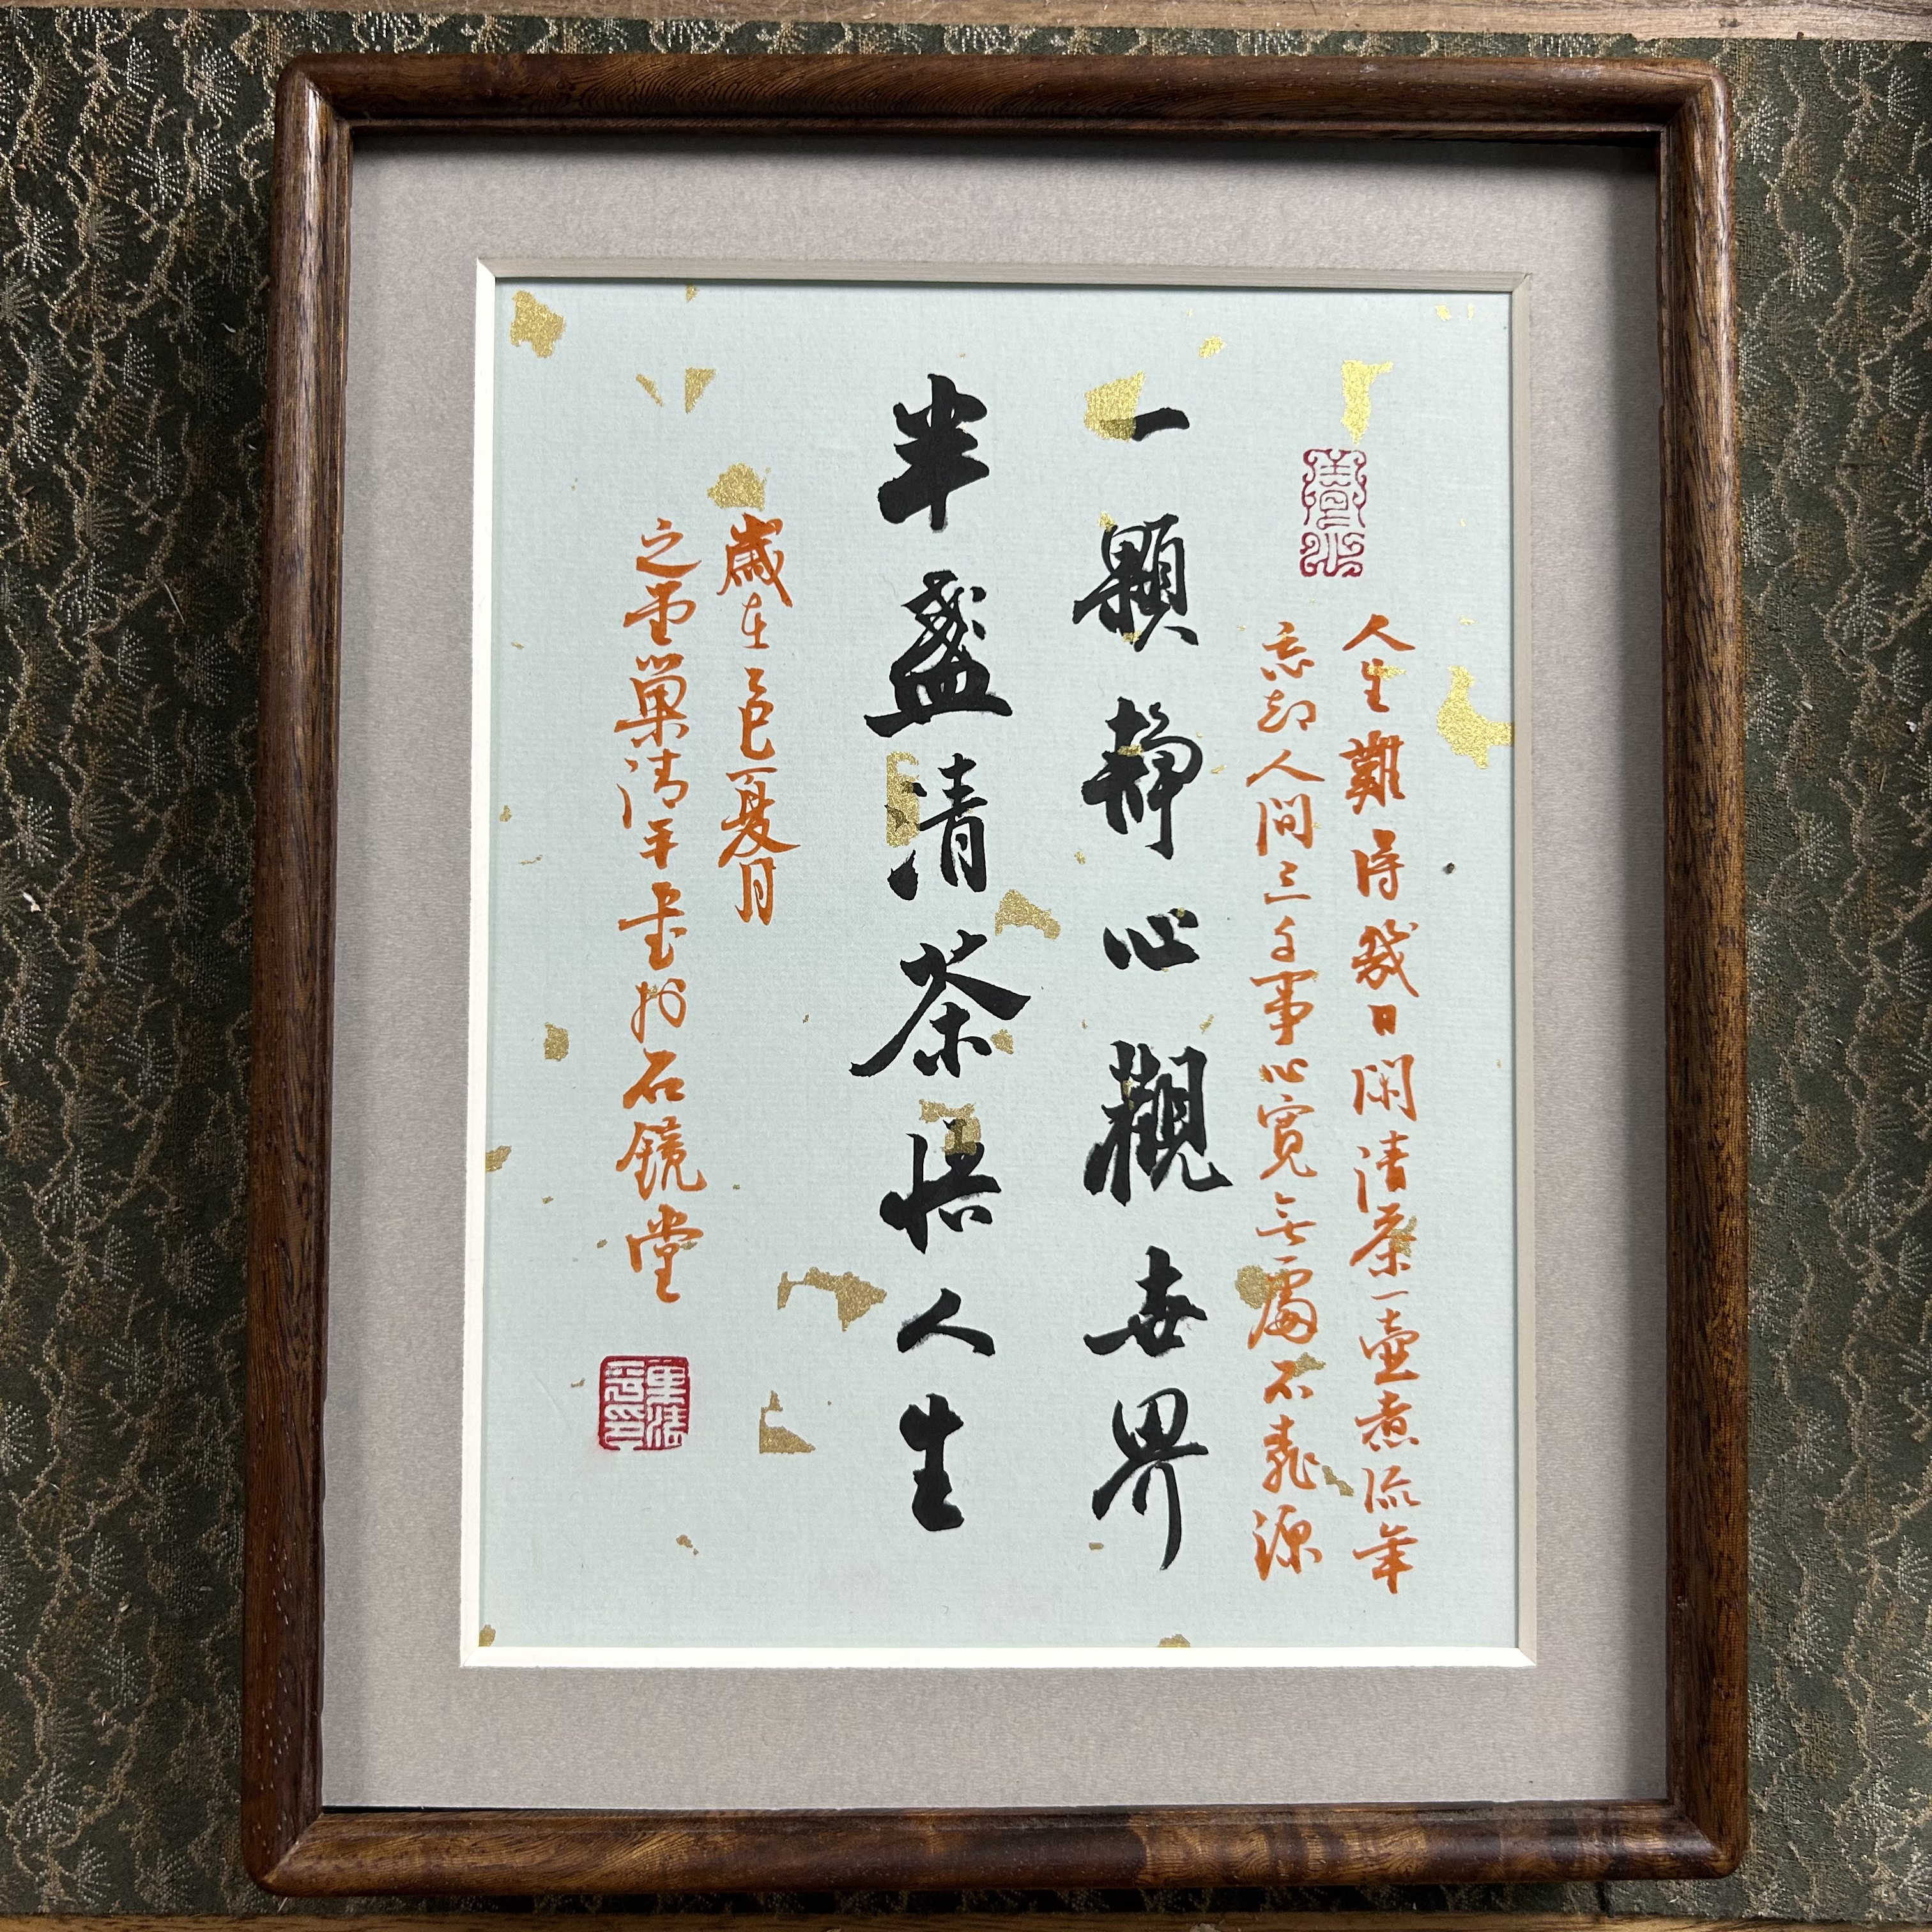 人生難得幾日閑清茶一壺煮流年
忘却人間三千事心寬無處不桃源
一顆静心觀世界
半盞清茶悟人生
歲在乙巳夏月
之巢清平書於石鏡堂